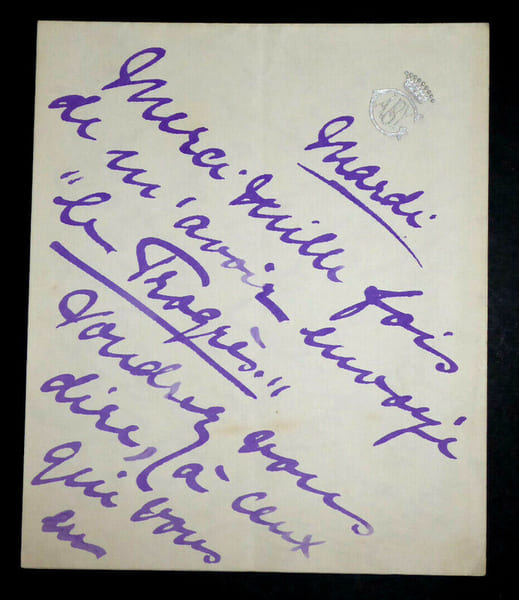 Mardi
Merci mille fois
de m'avoir envoyé
"le Progrès."
Voudrez vous
dire, à ceux
qui vous
en